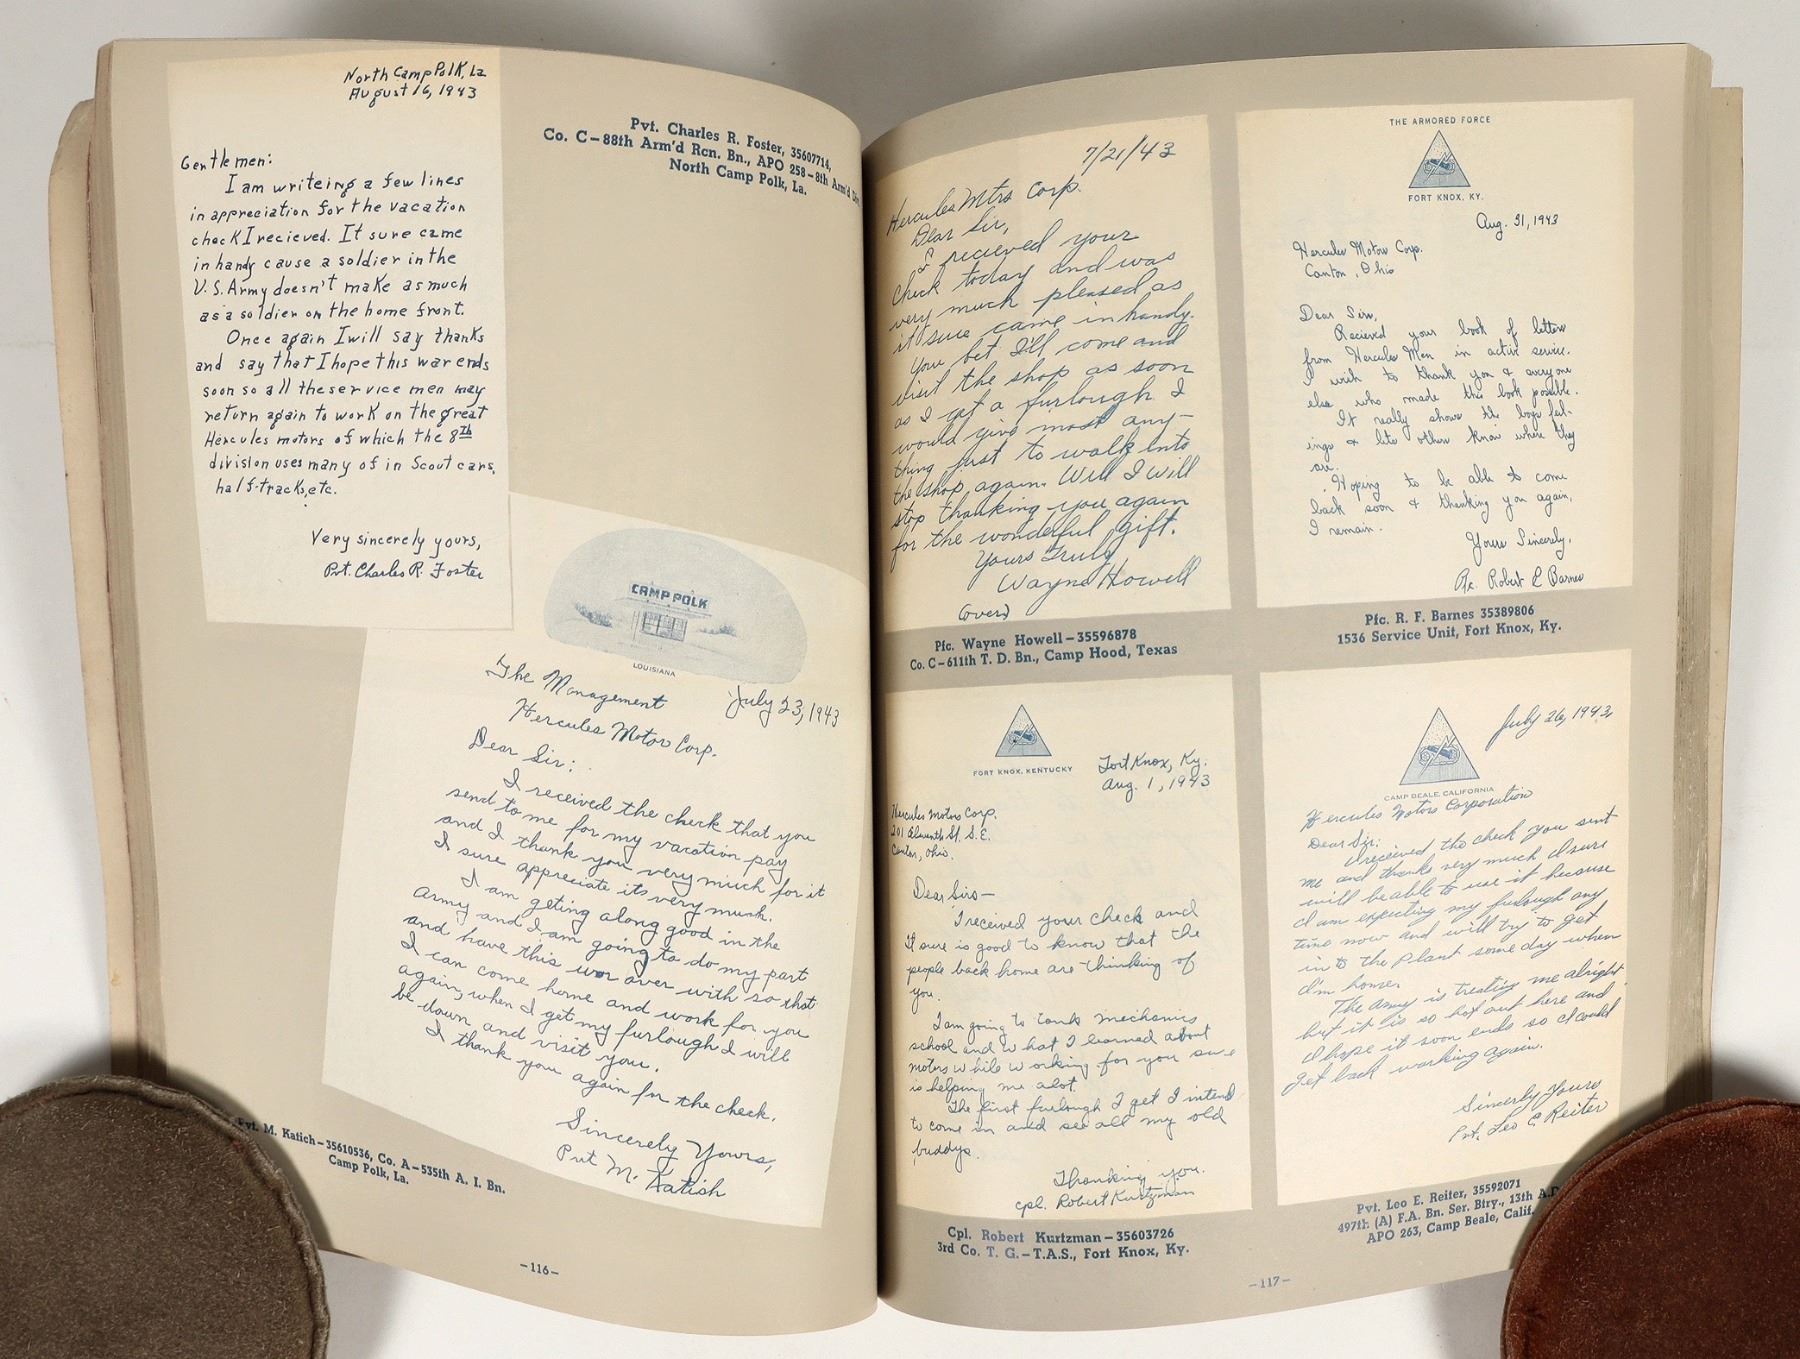 North Camp Polk, La
August 16, 1943
Gentlemen:
I am writeing a few lines
in appreciation for the vacation
check I recieved. It sure came
in handy cause a soldier in the
U.S. Army doesn't make as much
as a soldier on the home front.
Once again I will say thanks
and say that I hope this war ends
soon so all the service men may
return again to work on the great
Hercules motors of which the 8th
division uses many of in Scout cars,
half-tracks, etc.
Very sincerely yours,
Pvt. Charles R. Foster
Pvt. Charles R. Foster, 35607714,
Co. C–88th Arm'd Rcn. Bn., APO 258–8th Arm'd
North Camp Polk, La.
CAMP POLK
LOUISIANA
The Management
July 23, 1943
Hercules Motor Corp.
Dear Sir:
I received the check that you
send to me for my vacation pay
and I thank you very much for it
I sure appreciate its very mush.
I am geting along good in the
army and I am going to do my part
and have this war over with so that
I can come home and work for you
again, when I get my furlough I will
be down and visit you.
I thank you again for the check.
Sincerely Yours,
Pvt M. Katich
Pvt. M. Katich–35610536, Co. A–535th A. I. Bn.
Camp Polk, La.
–116–
7/21/43
Hercules Mtrs Corp.
Dear Sir,
I recieved your
check today and was
very much pleased as
it sure came in handy.
You bet I'll come and
visit the shop as soon
as I get a furlough I
would give most any-
thing just to walk into
the shop, again. Well I will
stop thanking you again
for the wonderful gift.
Yours Truly,
Wayne Howell
(over)
Pfc. Wayne Howell–35596878
Co. C–611th T. D. Bn., Camp Hood, Texas
THE ARMORED FORCE
FORT KNOX, KY.
Aug. 31, 1943
Hercules Motor Corp.
Canton, Ohio
Dear Sirs,
Recieved your book of letters
from Hercules Men in active service.
I wish to thank you & everyone
else who made this book possible.
It really shows the boys feel-
ings & lets others know where they
are.
Hoping to be able to come
back soon & thanking you again,
I remain.
Yours Sincerely,
Pfc. Robert E Barnes
Pfc. R. F. Barnes 35389806
1536 Service Unit, Fort Knox, Ky.
FORT KNOX, KENTUCKY
Fort Knox, Ky.
Aug. 1, 1943
Hercules Motors Corp.
201 Eleventh St. S.E.
Canton, Ohio.
Dear Sirs–
I received your check and
it sure is good to know that the
people back home are thinking of
you.
I am going to tank mechanics
school and what I learned about
motors while working for you sure
is helping me alot.
The first furlough I get I intend
to come in and see all my old
buddys.
Thanking you.
Cpl. Robert Kurtzman
Cpl. Robert Kurtzman–35603726
3rd Co. T. G.–T.A.S., Fort Knox, Ky.
July 26, 1943
CAMP BEALE, CALIFORNIA
Hercules Motors Corporation
Dear Sir:
I received the check you sent
me and thanks very much I sure
will be able to use it because
I am expecting my furlough any
time now and will try to get
in to the plant some day when
I'm home.
The army is treating me alright
but it is so hot out here and
I hope it soon ends so I could
get back working again.
Sincerly Yours
Pvt. Leo E. Reiter
Pvt. Leo E. Reiter, 35592071
497th (A) F.A. Bn. Ser. Btry., 13th A.D.
APO 263, Camp Beale, Calif.
–117–